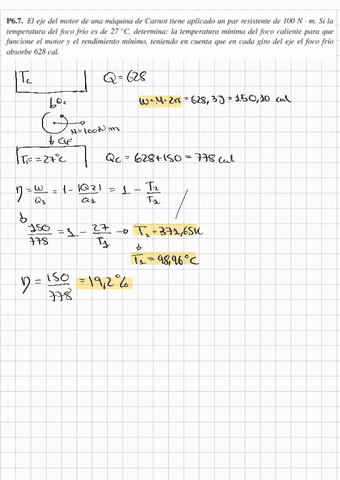 P6.7. El eje del motor de una máquina de Carnot tiene aplicado un par resistente de 100 N · m. Si la
temperatura del foco frío es de 27 °C, determina: la temperatura mínima del foco caliente para que
funcione el motor y el rendimiento mínimo, teniendo en cuenta que en cada giro del eje el foco frío
absorbe 628 cal.
Tc
Q = 628
Qc
W = M · 2π = 628, 3J = 150,10 cal
M = 100 N m
QF
TF = 27°C
Qc = 628 + 150 = 778 cal
η = W/Q1 = 1 - |Q2|/Q1 = 1 - T2/T1
150/778 = 1 - 27/T1 → T1 = 371,65K
T1 = 98,96°C
η = 150/778 = 19,2%